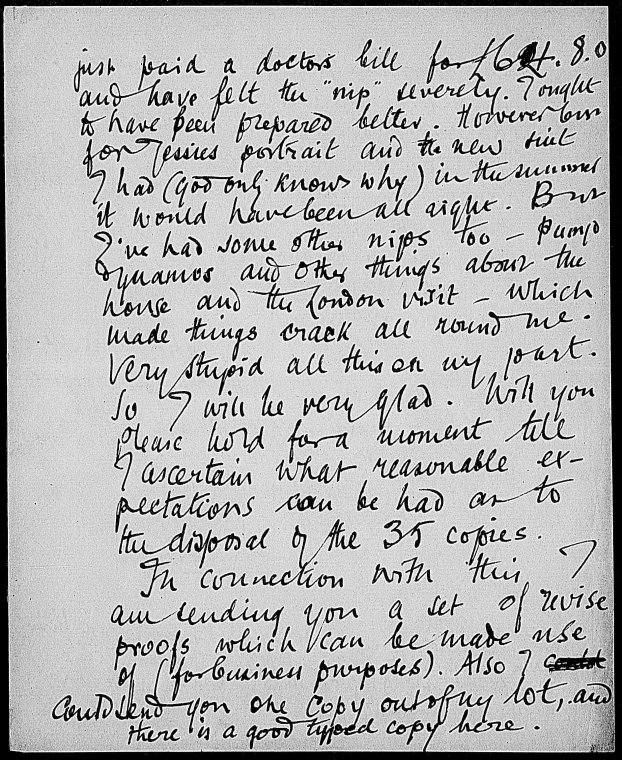 just paid a doctors bill for £64.8.0
and have felt the "nip" severely. I ought
to have been prepared better. However but
for Jessies portrait and the new suit
I had (god only knows why) in the summer
it would have been all right. But
I've had some other nips too – pump
dynamos and other things about the
house and the London visit – which
made things crack all round me.
Very stupid all this on my part.
So I will be very glad. Will you
please hold for a moment till
I ascertain what reasonable ex-
pectations can be had as to
the disposal of the 35 copies.
In connection with this I
am sending you a set of revise
proofs which can be made use
of (for business purposes). Also I
could send you one copy out of my lot, and
there is a good typed copy here.